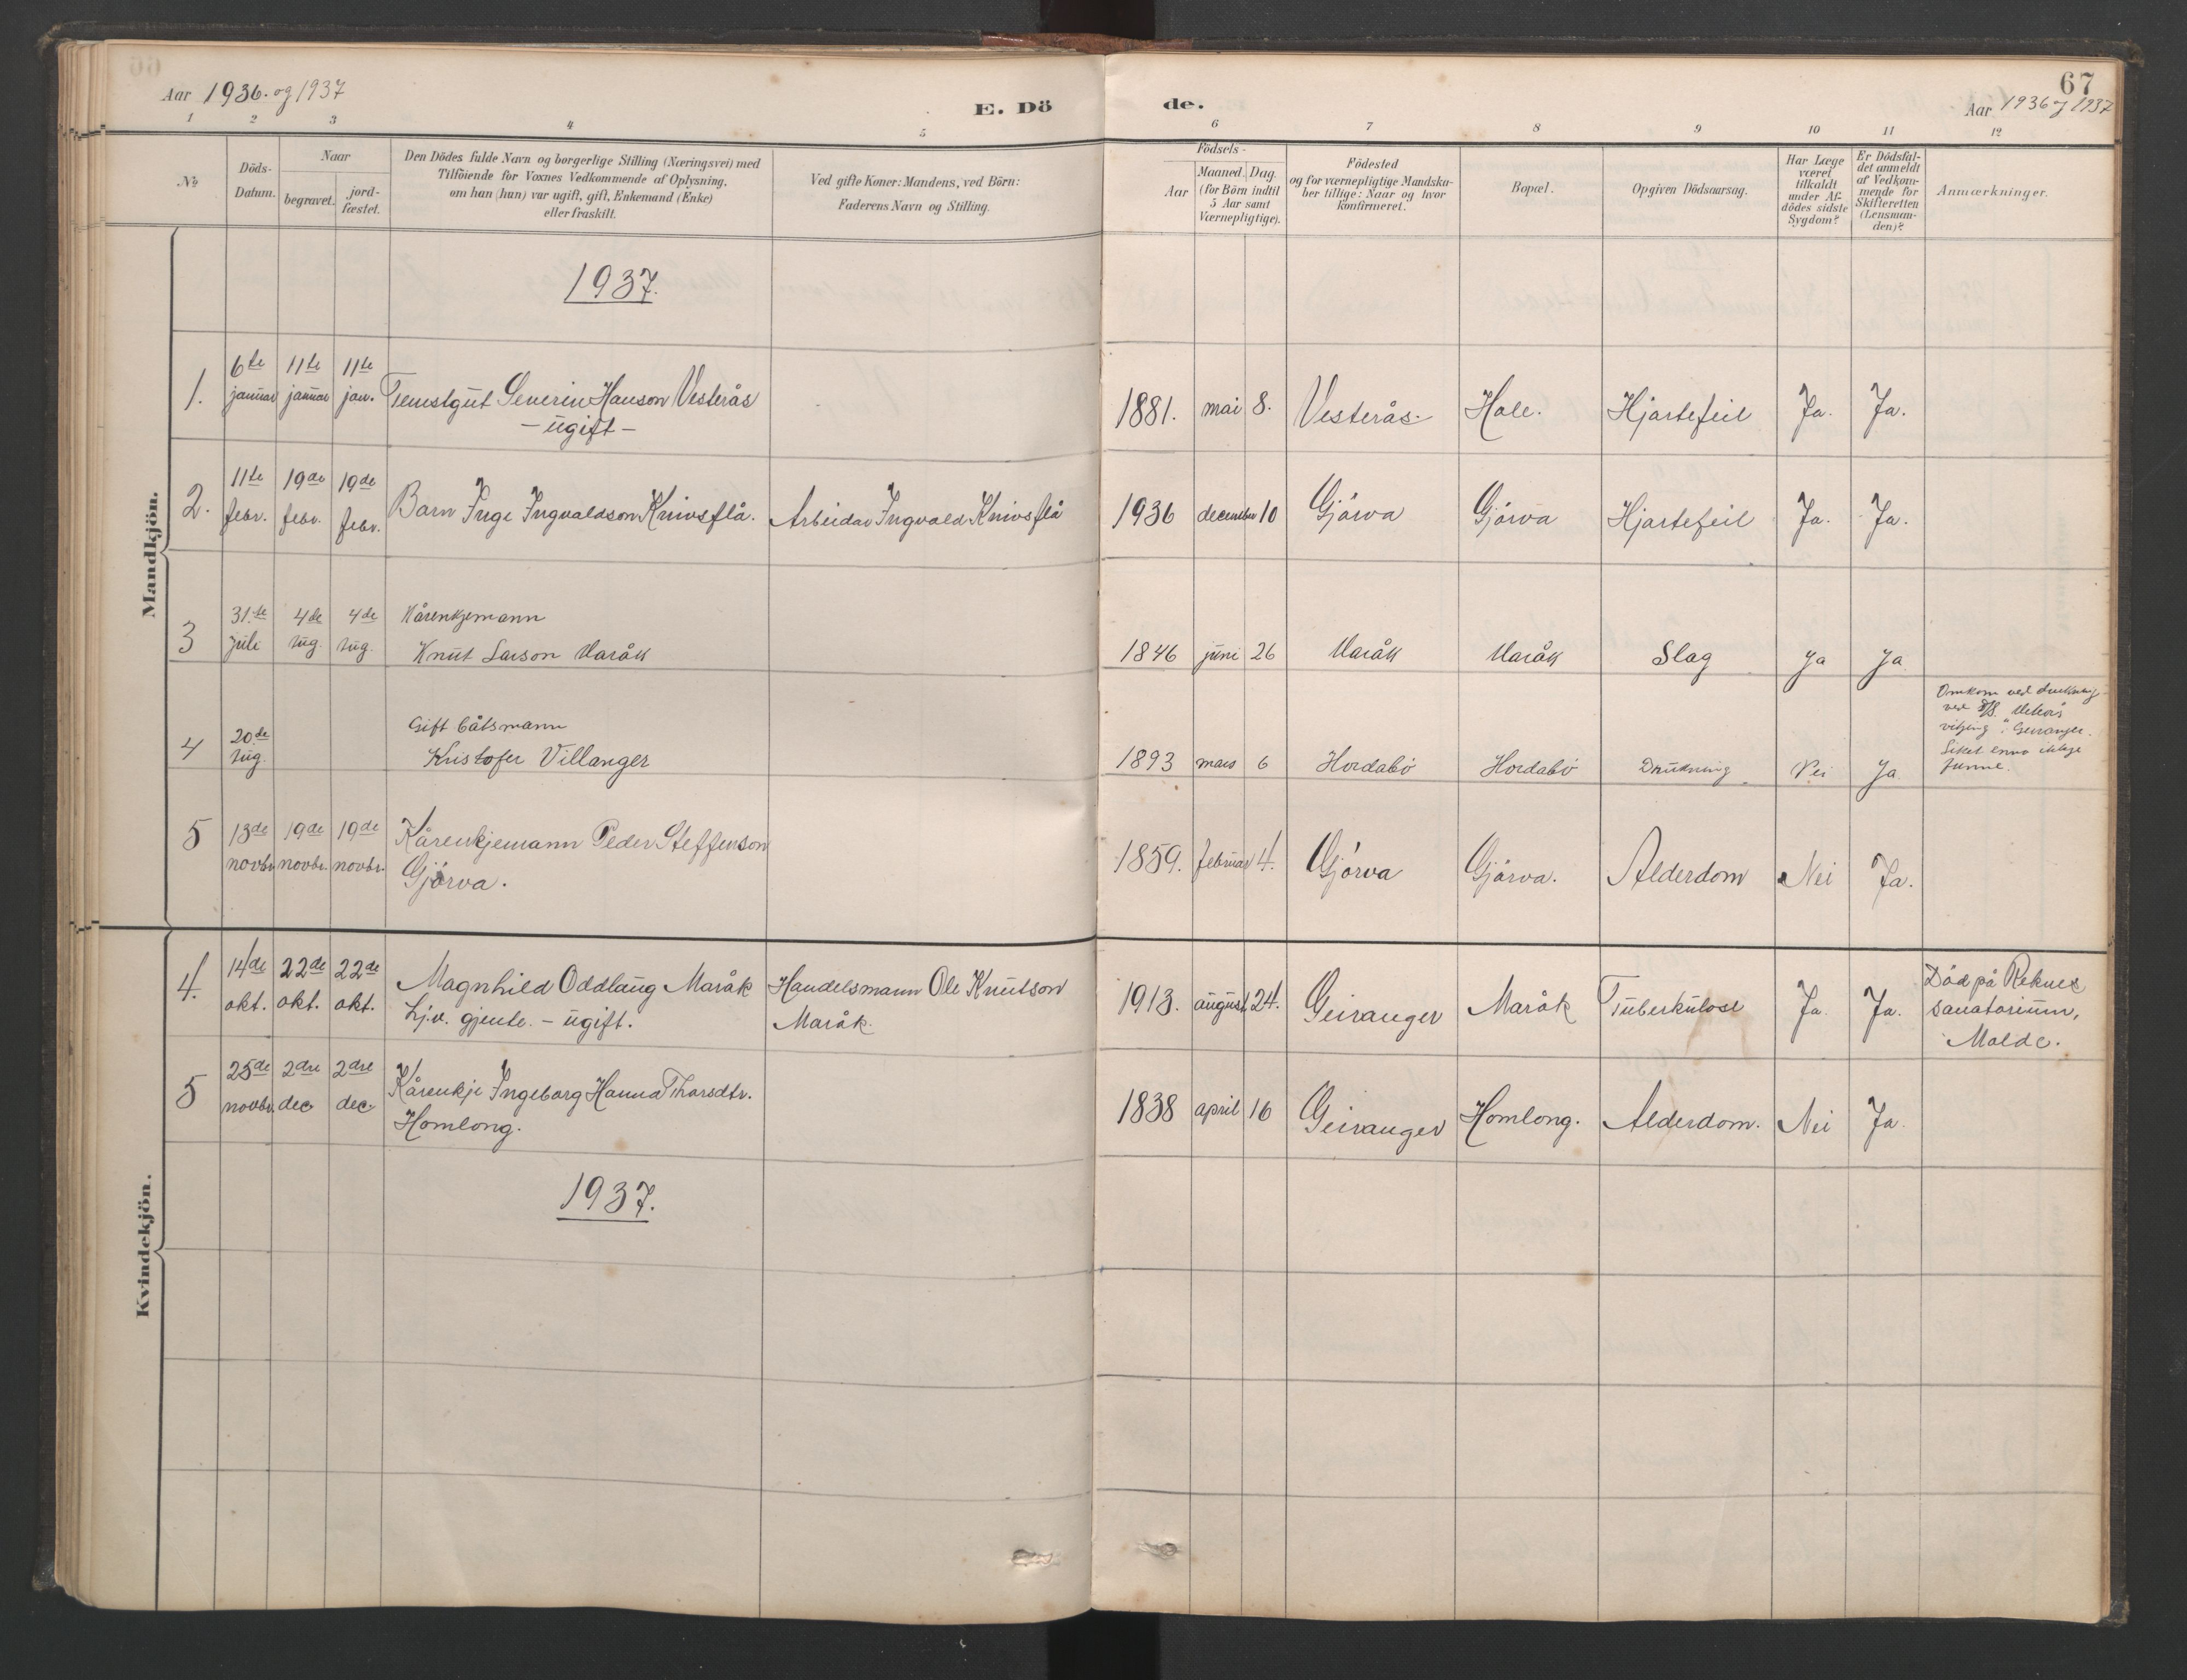 Aar 1936. og 1937
E. Dö de.
67
Aar 1936 og 1937
1 2 3 4 5 6 7 8 9 10 11 12
No
Döds-
Datum.
Naar
begravet.
jord-
fæstet.
Den Dödes fulde Navn og borgerlige Stilling (Næringsvei) med
Tilföiende for Voxnes Vedkommende af Oplysning,
om han (hun) var ugift, gift, Enkemand (Enke)
eller fraskilt.
Ved gifte Koner: Mandens, ved Börn:
Faderens Navn og Stilling.
Födsels-
Aar
Maaned. Dag.
(for Börn indtil
5 Aar samt
Værnepligtige).
Födested
og for værnepligtige Mandska-
ber tillige: Naar og hvor
konfirmeret.
Bopæl.
Opgiven Dödsaarsag.
Har Læge
været
tilkaldt
under Af-
dödes sidste
Sygdom?
Er Dödsfal-
det anmeldt
af Vedkom-
mende for
Skifteretten
(Lensman-
den)?
Anmærkninger.
Mandkjön.
1937.
1. 6te januar 11te januar 11te jan. Tenestgut Severin Hanson Vesterås
- ugift -
1881. mai 8. Vesterås. Hole. Hjartefeil Ja. Ja.
2. 11te febr. 19de febr. 19de febr. Barn Inge Ingvaldson Knivsflå. Arbeidar Ingvald Knivsflå 1936 december 10 Gjörva Gjörva Hjartefeil Ja. Ja.
3 31.te juli 4de aug. 4de aug. Kårenkjemann
Knut Larson Maråk 1846 juni 26 Maråk Maråk Slag Ja Ja
4 20.de aug. Gift båtsmann
Kristofer Villanger 1893 mars 6 Hordabö Hordabö Drukning Nei Ja
Omkom ved drukning
ved
Geiranger.
Liket enno ikkje
funne.
5 13de novbr. 19de novbr. 19de novbr. Kårenkjemann Peder Steffenson
Gjörva.
1859. februar 4. Gjörva Gjörva. Alderdom Nei Ja.
Kvindekjön.
4. 14de okt. 22de okt. 22de okt. Magnhild Oddlaug Maråk
Lj.v. gjente. - ugift.
Handelsmann Ole Knutson
Maråk.
1913. august 24. Geiranger Maråk Tuberkulose Ja. Ja.
Död på Reknes
sanatorium,
Molde.
5 25de novbr. 2dre dec 2dre dec. Kårenkje Ingeborg Hanna Thorsdtr.
Homlong.
1838 april 16 Geiranger Homlong. Alderdom. Nei Ja.
1937.